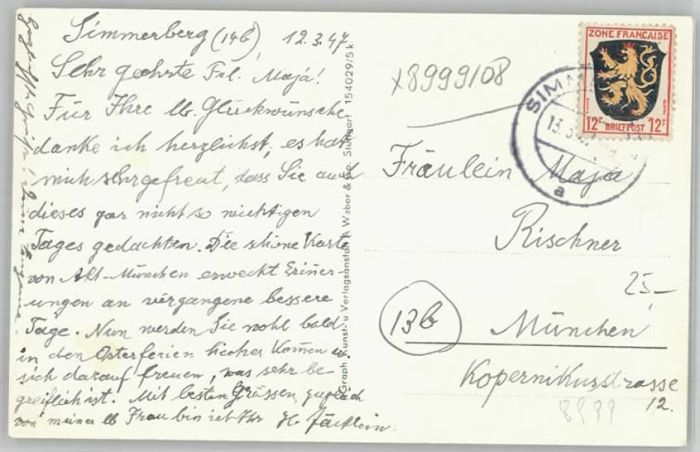 Simmerberg (14b), 12.3.47
Sehr geehrte Frl. Maja!
Für Ihre lb. Glückwünsche
danke ich herzlichst, es hat
mich sehr gefreut, dass Sie auch
dieses gar nicht so wichtigen
Tages gedachten. Die schöne Karte
von Alt-München erweckt Erinner-
ungen an vergangene bessere
Tage. Nun werden Sie wohl bald
in den Osterferien hieher kommen u.
sich darauf freuen, was sehr be
greiflich ist. Mit besten Grüssen, zugleich
von meiner lb Frau bin ich Ihr
Graph. Kunst- u. Verlagsanstalt Waber & Co. Stuttgart 154029/5k
x8999/08
ZONE FRANÇAISE
12F BRIEFPOST 12F
SIMME
13.3.47
a
Fräulein Maja
Rischner
25,-
13b
München
Kopernikusstrasse
12.
8999